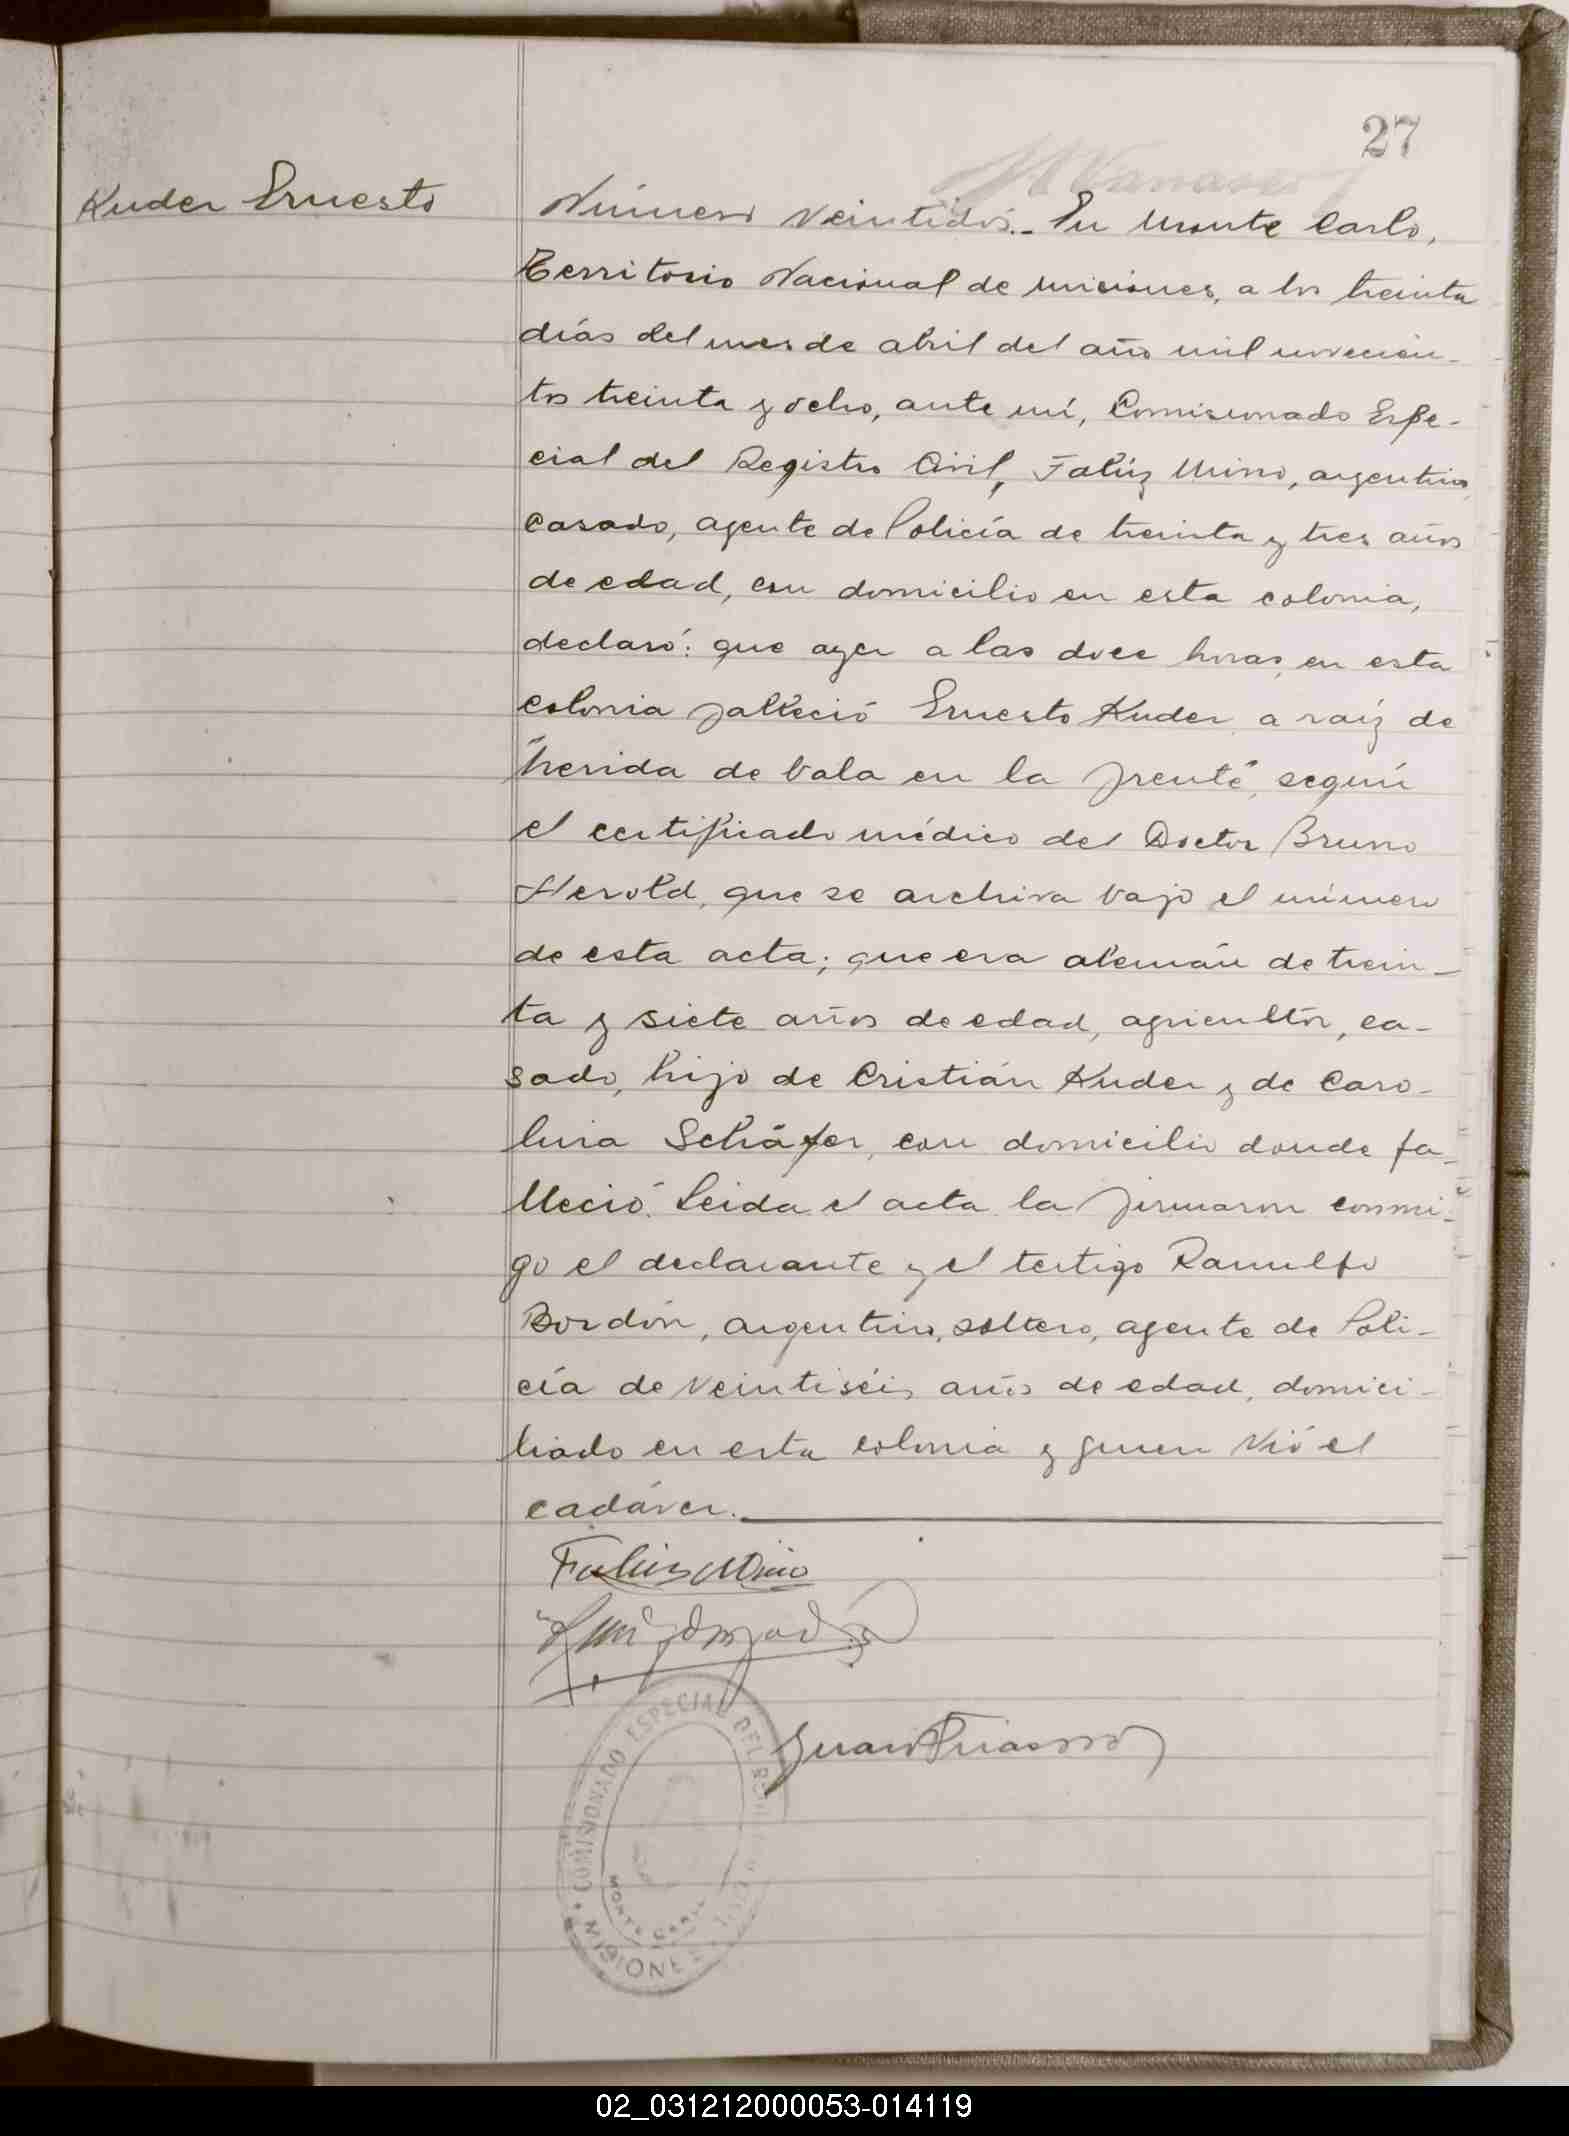 27
Kuder Ernesto
Número veintidós.- En Monte Carlo,
Territorio Nacional de Misiones, a los treinta
días del mes de abril del año mil novecien-
tos treinta y ocho, ante mí, Comisionado Espe-
cial del Registro Civil, Miño, argentino,
casado, agente de Policía de treinta y tres años
de edad, con domicilio en esta colonia,
declaró: que ayer a las doce horas, en esta
colonia falleció Ernesto Kuder a raíz de
"herida de bala en la frente", según
el certificado médico del Doctor Bruno
Herold, que se archiva bajo el número
de esta acta; que era alemán de trein-
ta y siete años de edad, agricultor, ca-
sado, hijo de Cristián Kuder y de Caro-
lina Schäfer, con domicilio donde fa-
lleció. Leida el acta la firmaron conmi-
go el declarante y el testigo Ranulfo
Bordón, argentino, soltero, agente de Poli-
cía de veintiséis años de edad, domici-
liado en esta colonia y quien vió el
cadáver.
Miño
COMISIONADO ESPECIAL DEL
MONTE CARLO
MISIONES
02_031212000053-014119